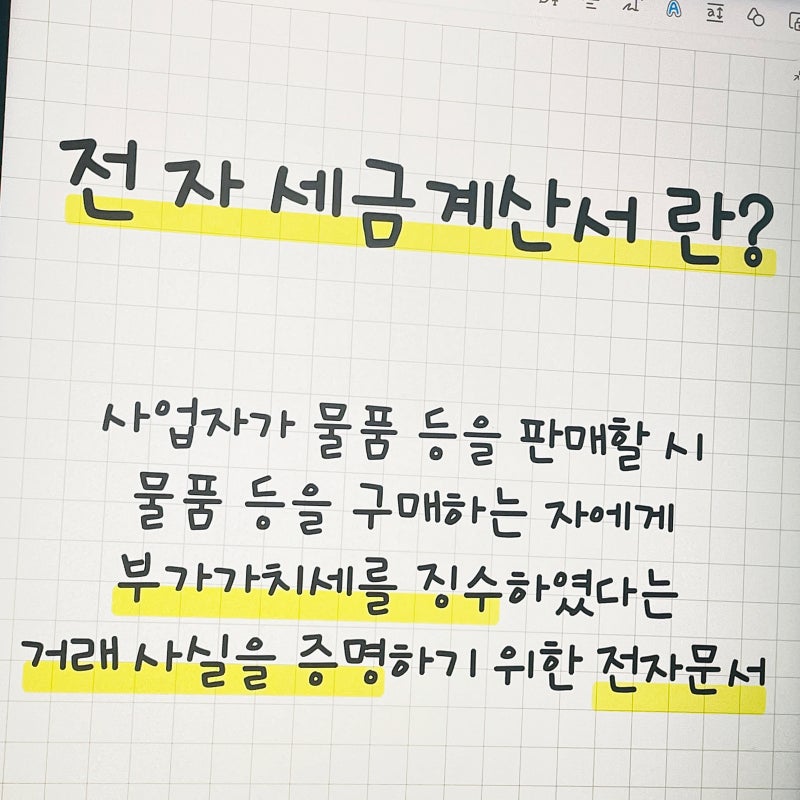 전자 세금계산서 란?
사업자가 물품 등을 판매할 시
물품 등을 구매하는 자에게
부가가치세를 징수하였다는
거래 사실을 증명하기 위한 전자문서